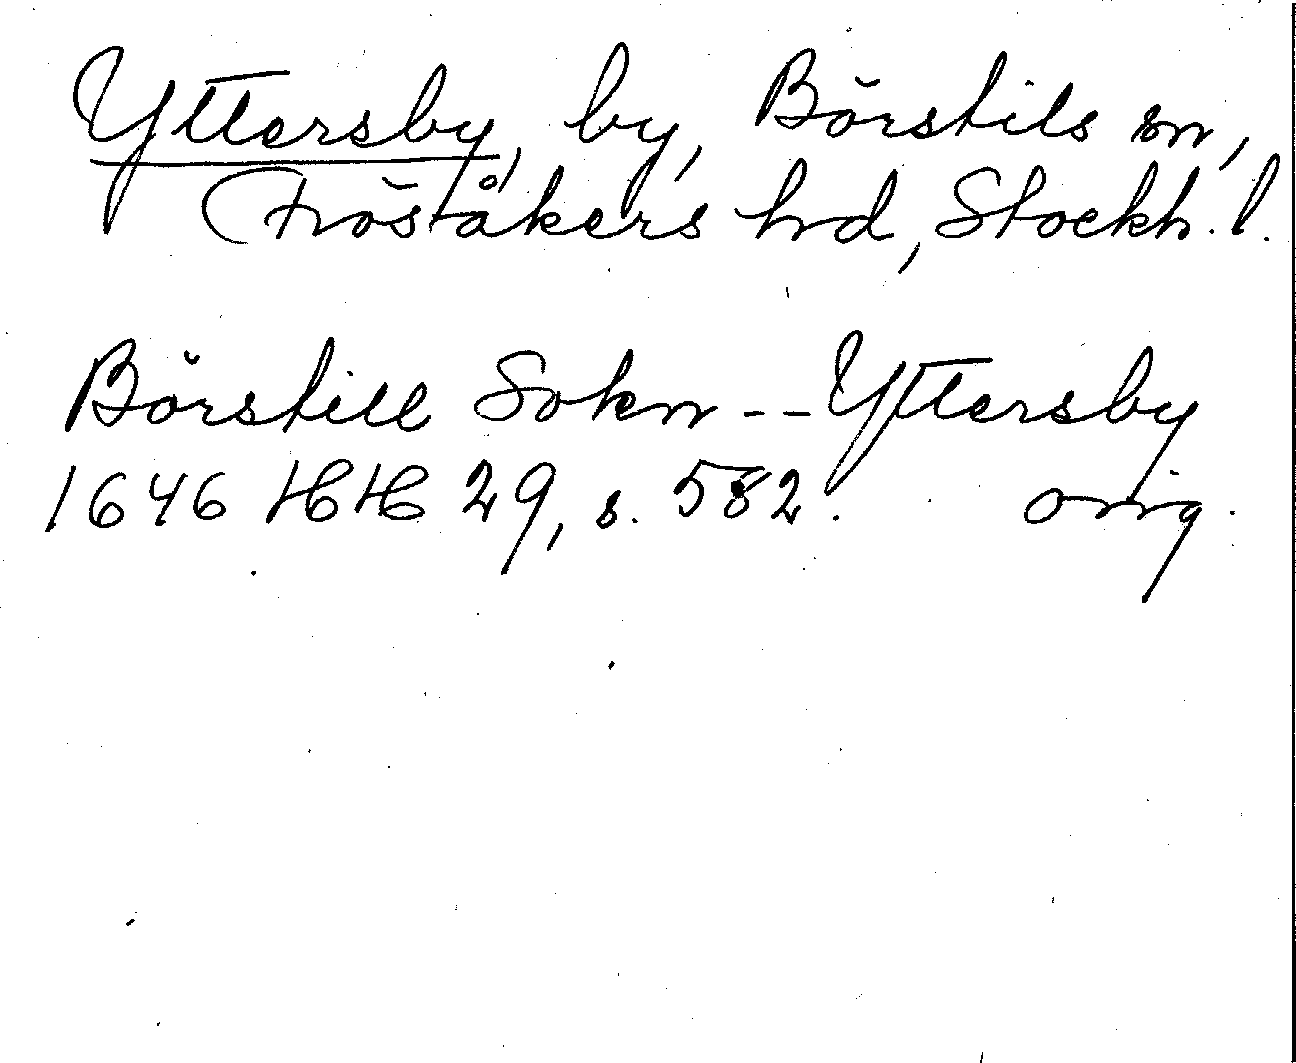 Yttersby, by, Börstils sn,
Frösåkers hd, Stockh. l.
Börstill Sokn -- Yttersby
1646 HH 29, s. 582. orig.